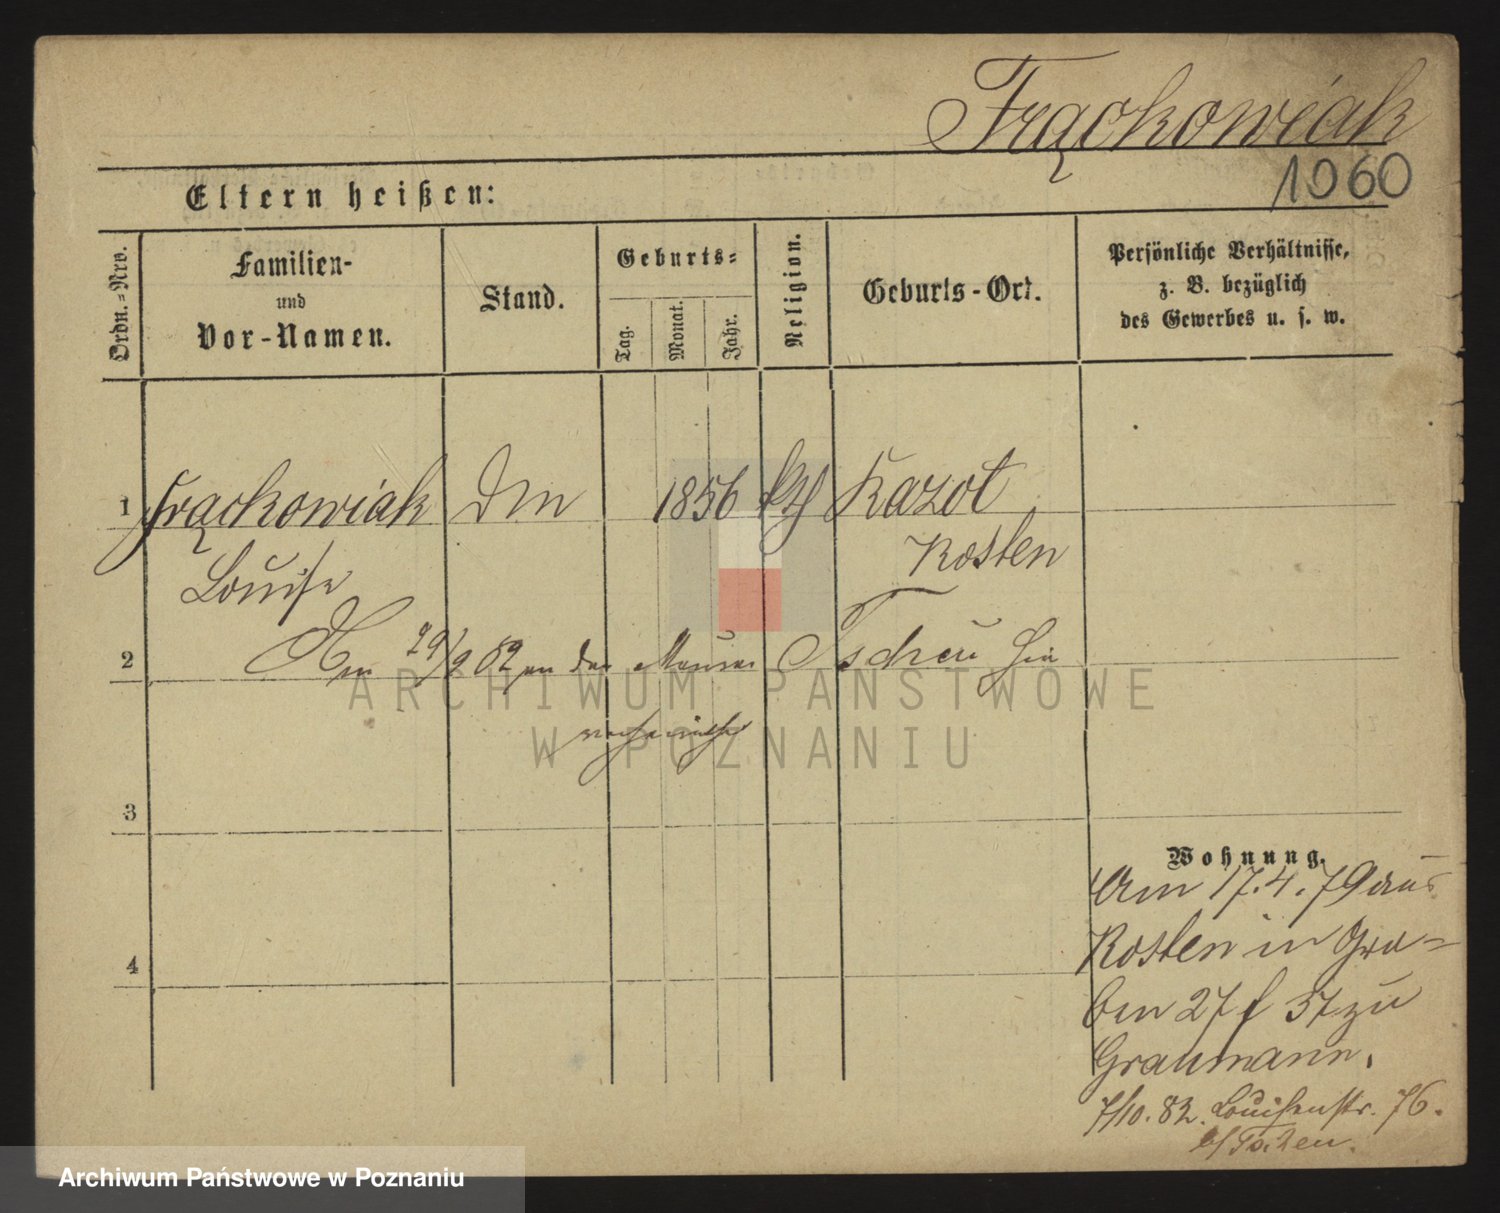 Frąckowiak
1060
Eltern heißen:
Ordn.=Nro.
Familien-
und
Vor-Namen.
Stand.
Geburts=
Tag.
Monat.
Jahr.
Religion.
Geburts-Ort.
Persönliche Verhältnisse,
z. B. bezüglich
des Gewerbes u. s. w.
1 Frąckowiak 1856 kth Kazot
Kosten
Louise
2 29/9 82 an den Tscheu
ARCHIWUM PAŃSTWOWE
W POZNANIU
3
Wohnung.
Am 17.4.79 aus
Kosten in Gra=
ben 27 f 37 zu
4
Graumann.
7/10.82. Louisenstr. 76.
Archiwum Państwowe w Poznaniu